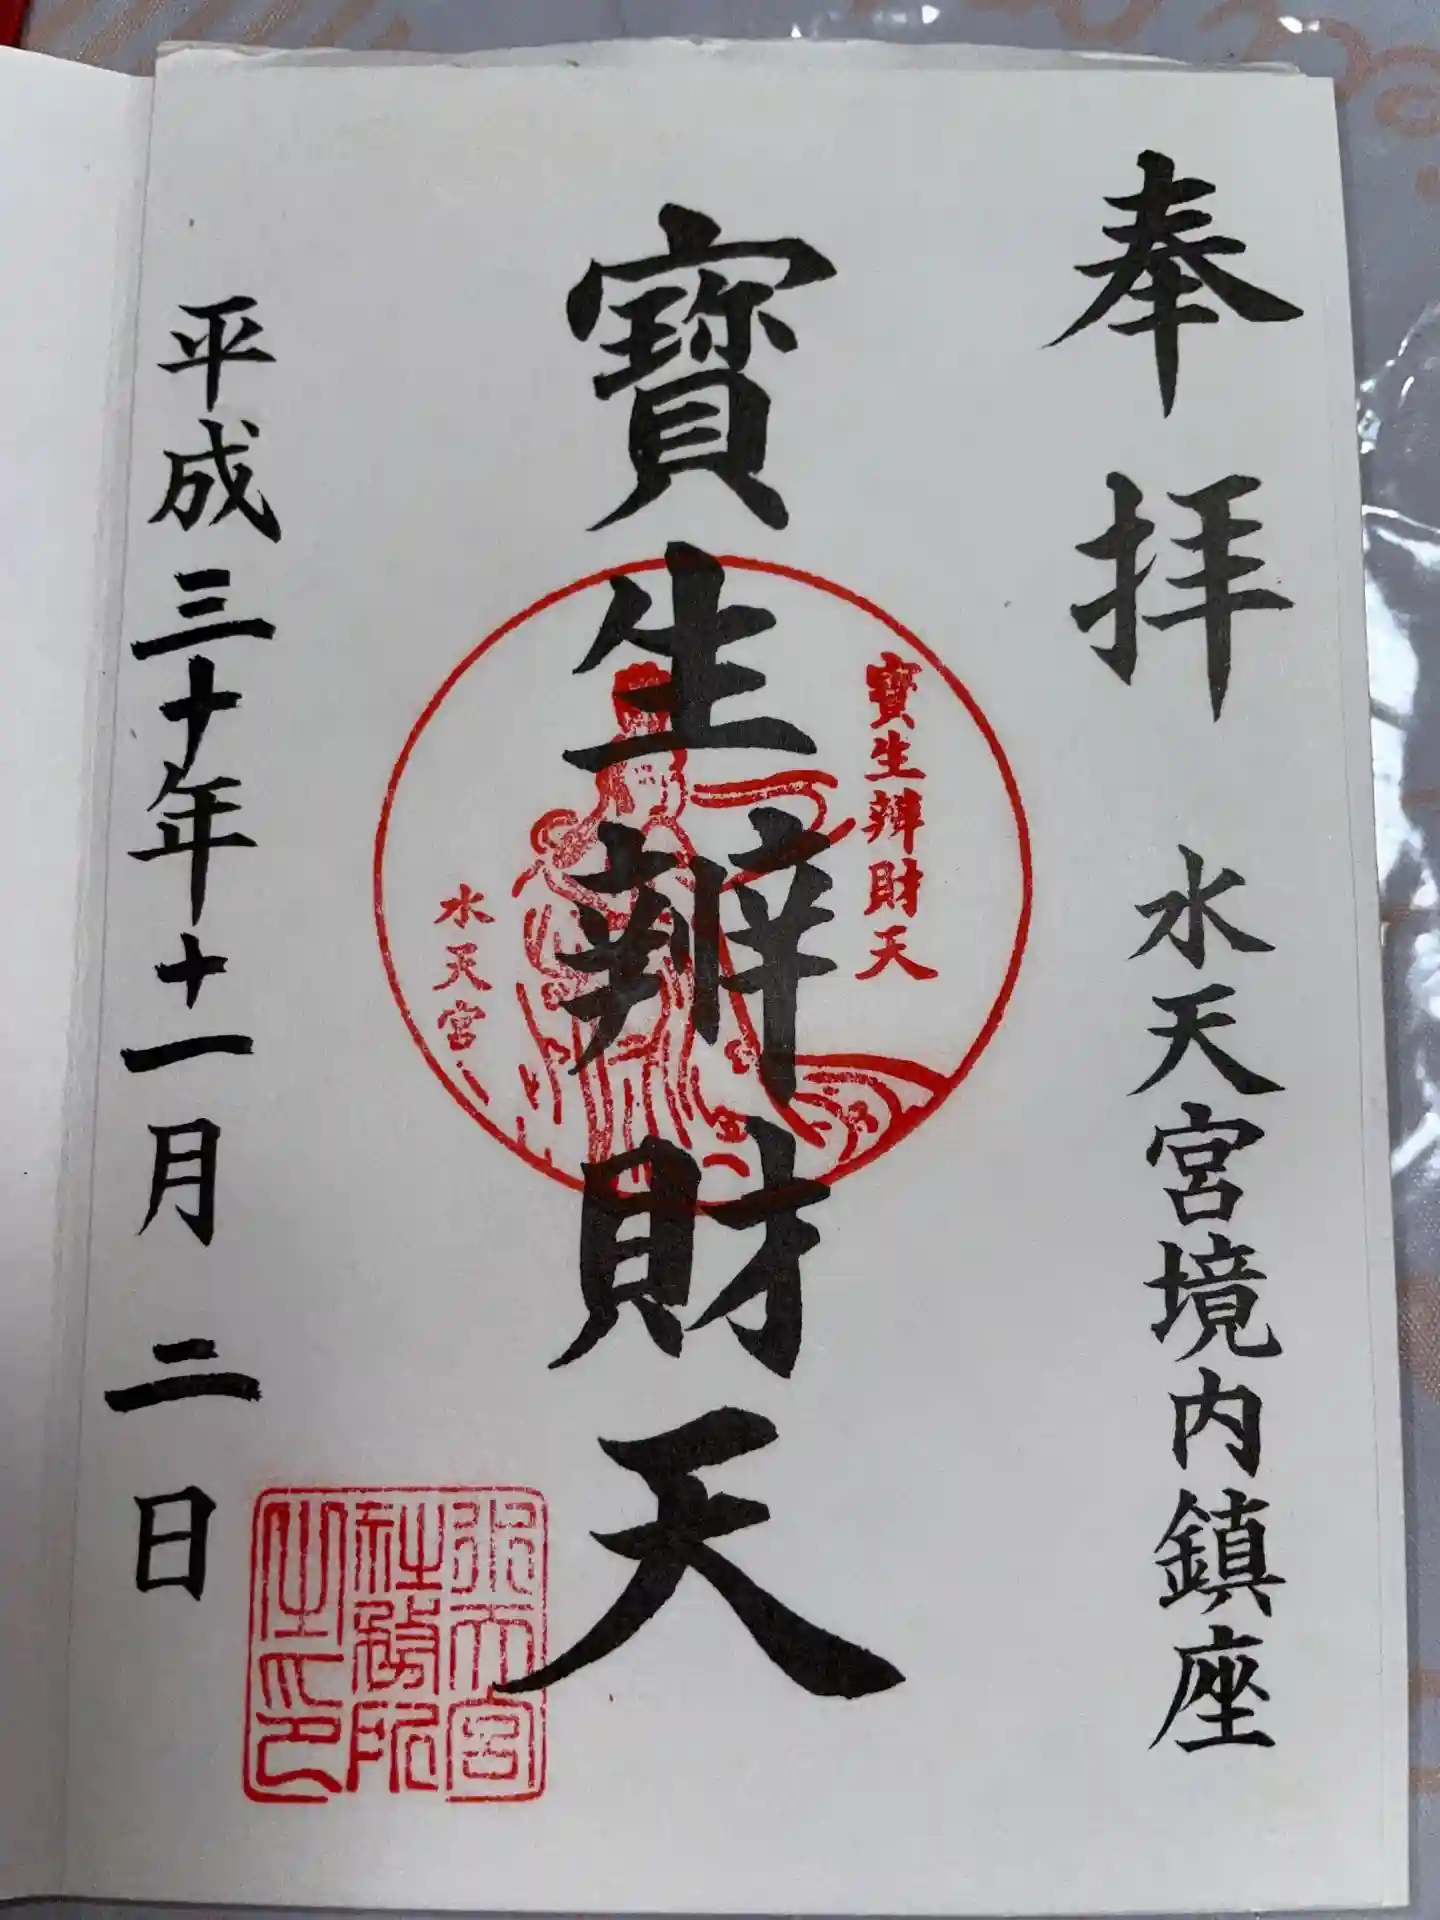 奉拝
水天宮境内鎮座
寶生辨財天
寶生辨財天
水天宮
水天宮
社務所
之印
平成三十年十一月二日